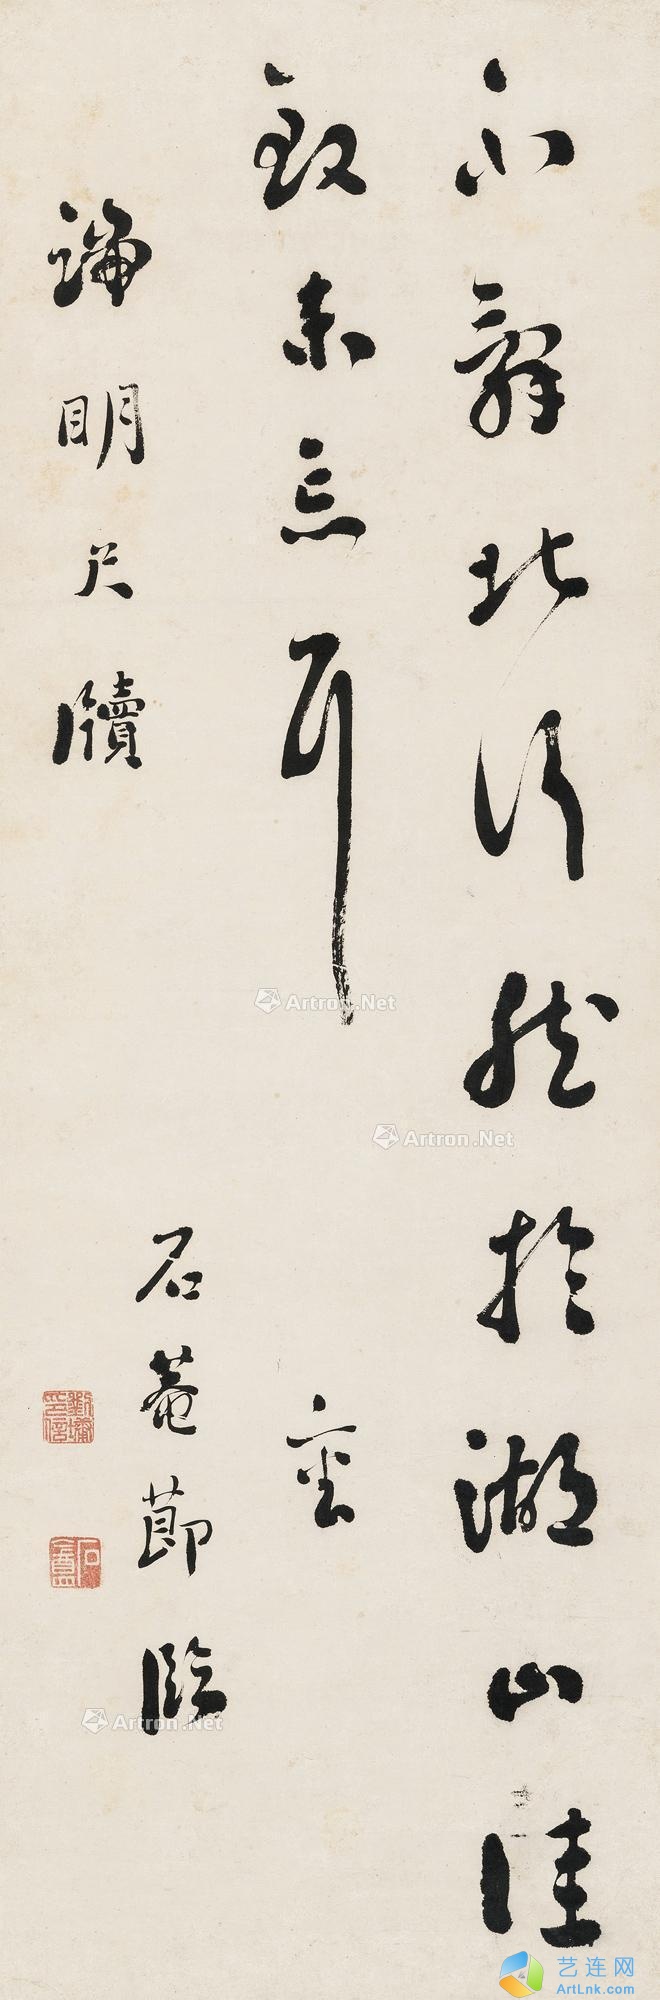 亦辭北行然於湖山佳
致未忘耳 襄
端明尺牘
石菴節臨
劉墉印信
石盦
Artron.Net
Artron.Net
Artron.Net
艺连网
ArtLink.com